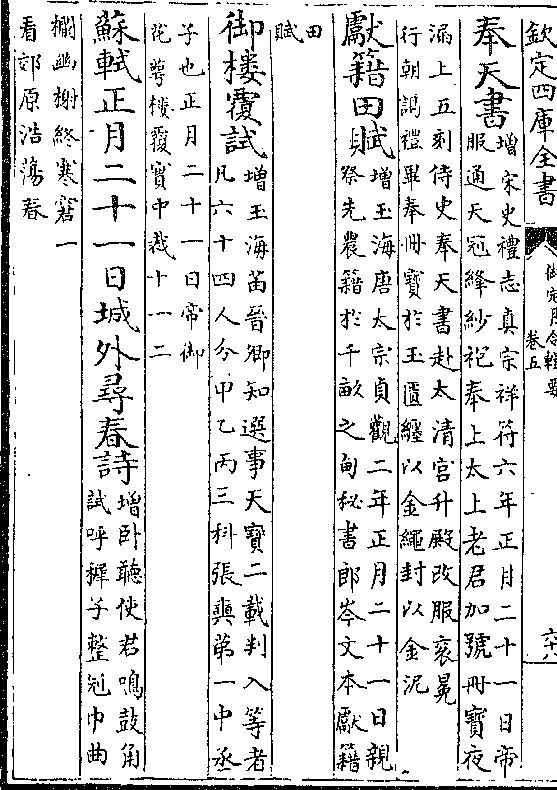 欽定四庫全書
御定月令輯要
卷五
六十八
奉天書
增宋史禮志真宗祥符六年正月二十一日帝
服通天冠絳紗袍奉上太上老君加號冊寶夜
漏上五刻侍史奉天書赴太清宮升殿改服衮冕
行朝謁禮畢奉冊寶於玉匱纏以金繩封以金泥
獻籍田賦
增玉海唐太宗貞觀二年正月二十一日親
祭先農籍於千畝之甸秘書郎岑文本獻籍
田
賦
御樓覆試
增玉海苗晉卿知選事天寶二載判入等者
凡六十四人分甲乙丙三科張奭第一中丞
子也正月二十一日帝御
花萼樓覆實中裁十一二
蘇軾正月二十一日城外尋春詩
增卧聽使君鳴鼓角
試呼穉子整冠巾曲
欄幽榭終寒窘一
看郊原浩蕩春